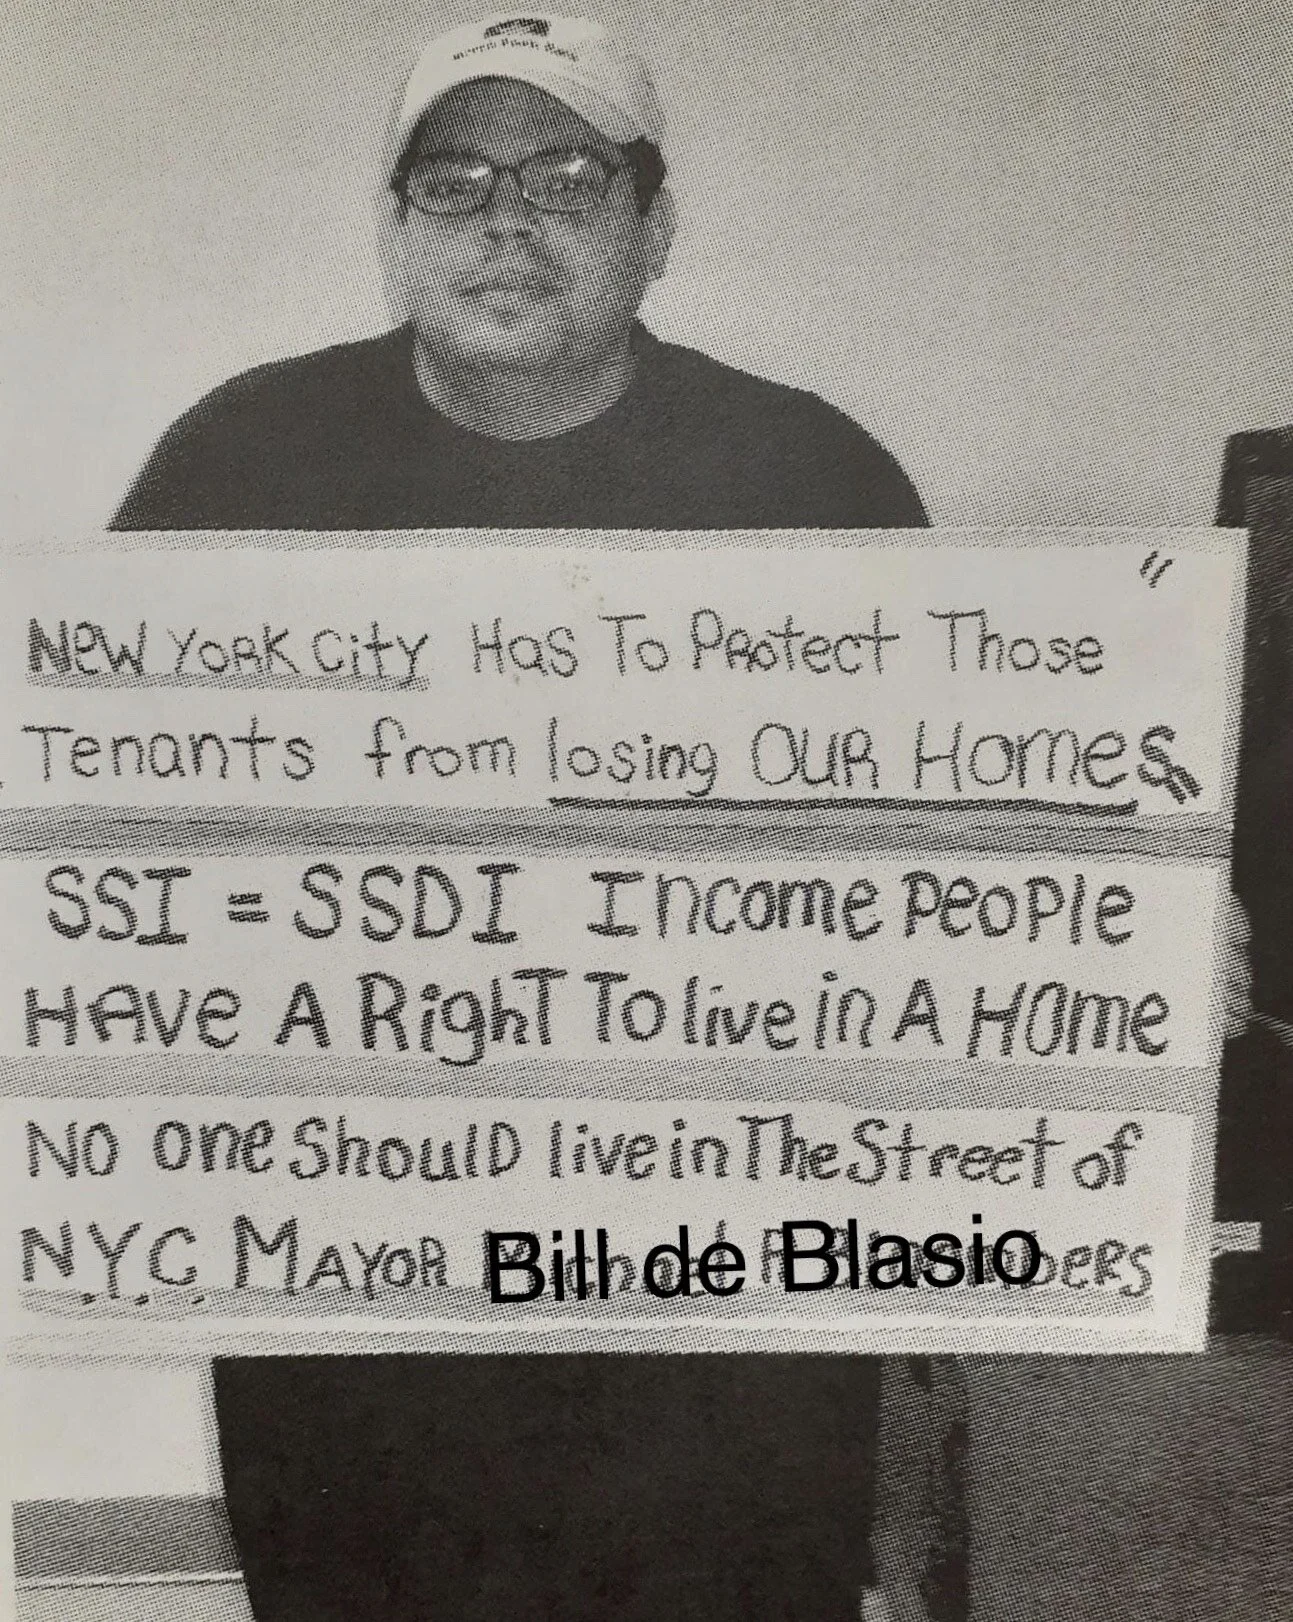 "
New York City Has To Protect Those
Tenants from losing OUR Homes"
SSI = SSDI Income People
Have A Right To live in A Home
No one Should live in The Street of
N.Y.C. Mayor Bill de Blasio